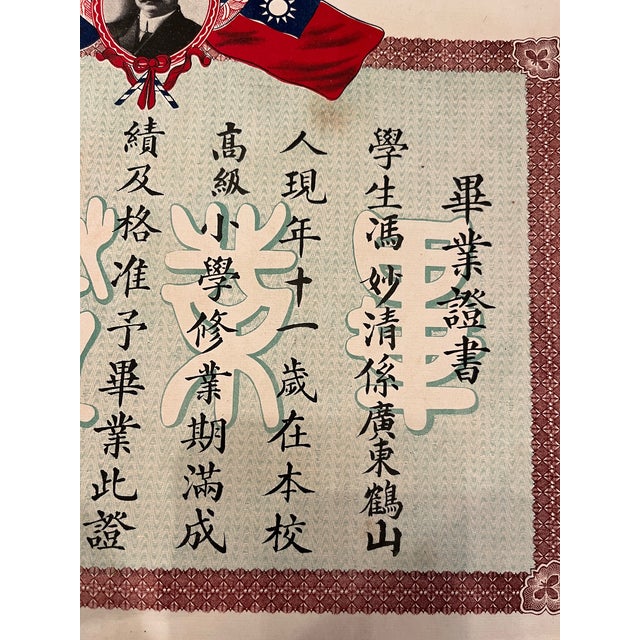 畢業證書
學生馮妙清係廣東鶴山
人現年十一歲在本校
高級小學修業期滿成
績及格准予畢業此證